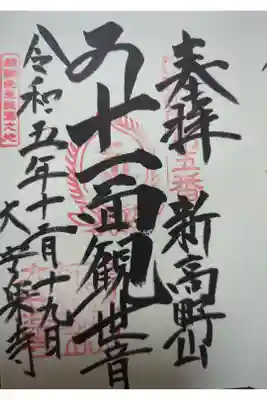 奉拝 新高野山
五番
十一面観世音
令和五年十二月十九日
大安楽寺